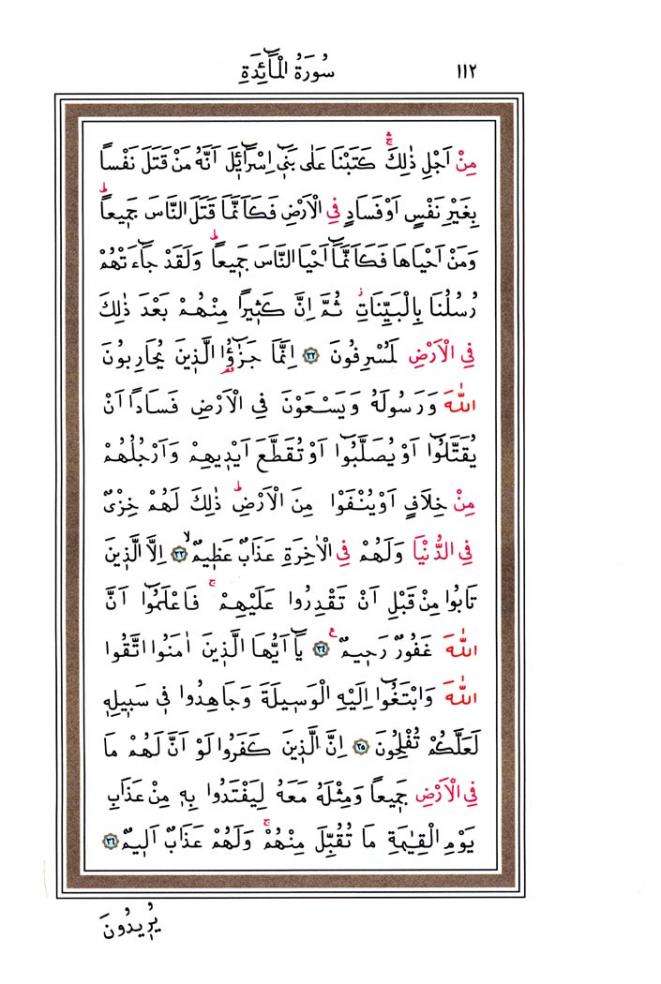 سُورَةُ الْمَٓائِدَةِ ١١٢
مِنْ اَجْلِ ذٰلِكَۚۛ كَتَبْنَا عَلٰى بَن۪ٓي اِسْرَٓائ۪لَ اَنَّهُ مَنْ قَتَلَ نَفْساً
بِغَيْرِ نَفْسٍ اَوْ فَسَادٍ فِي الْاَرْضِ فَكَاَنَّمَا قَتَلَ النَّاسَ جَم۪يعاًۜ
وَمَنْ اَحْيَاهَا فَكَاَنَّمَٓا اَحْيَا النَّاسَ جَم۪يعاًۜ وَلَقَدْ جَٓاءَتْهُمْ
رُسُلُنَا بِالْبَيِّنَاتِۘ ثُمَّ اِنَّ كَث۪يراً مِنْهُمْ بَعْدَ ذٰلِكَ
فِي الْاَرْضِ لَمُسْرِفُونَ ﴿٣٢﴾ اِنَّمَا جَزٰٓؤُا الَّذ۪ينَ يُحَارِبُونَ
اللّٰهَ وَرَسُولَهُ وَيَسْعَوْنَ فِي الْاَرْضِ فَسَاداً اَنْ
يُقَتَّلُٓوا اَوْ يُصَلَّبُٓوا اَوْ تُقَطَّعَ اَيْد۪يهِمْ وَاَرْجُلُهُمْ
مِنْ خِلَافٍ اَوْ يُنْفَوْا مِنَ الْاَرْضِۜ ذٰلِكَ لَهُمْ خِزْيٌ
فِي الدُّنْيَا وَلَهُمْ فِي الْاٰخِرَةِ عَذَابٌ عَظ۪يمٌۙ ﴿٣٣﴾ اِلَّا الَّذ۪ينَ
تَابُوا مِنْ قَبْلِ اَنْ تَقْدِرُوا عَلَيْهِمْۚ فَاعْلَمُٓوا اَنَّ
اللّٰهَ غَفُورٌ رَح۪يمٌ۟ ﴿٣٤﴾ يَٓا اَيُّهَا الَّذ۪ينَ اٰمَنُوا اتَّقُوا
اللّٰهَ وَابْتَغُٓوا اِلَيْهِ الْوَس۪يلَةَ وَجَاهِدُوا ف۪ي سَب۪يلِه۪
لَعَلَّكُمْ تُفْلِحُونَ ﴿٣٥﴾ اِنَّ الَّذ۪ينَ كَفَرُوا لَوْ اَنَّ لَهُمْ مَا
فِي الْاَرْضِ جَم۪يعاً وَمِثْلَهُ مَعَهُ لِيَفْتَدُوا بِه۪ مِنْ عَذَابِ
يَوْمِ الْقِيٰمَةِ مَا تُقُبِّلَ مِنْهُمْۚ وَلَهُمْ عَذَابٌ اَل۪يمٌ ﴿٣٦﴾
يُر۪يدُونَ